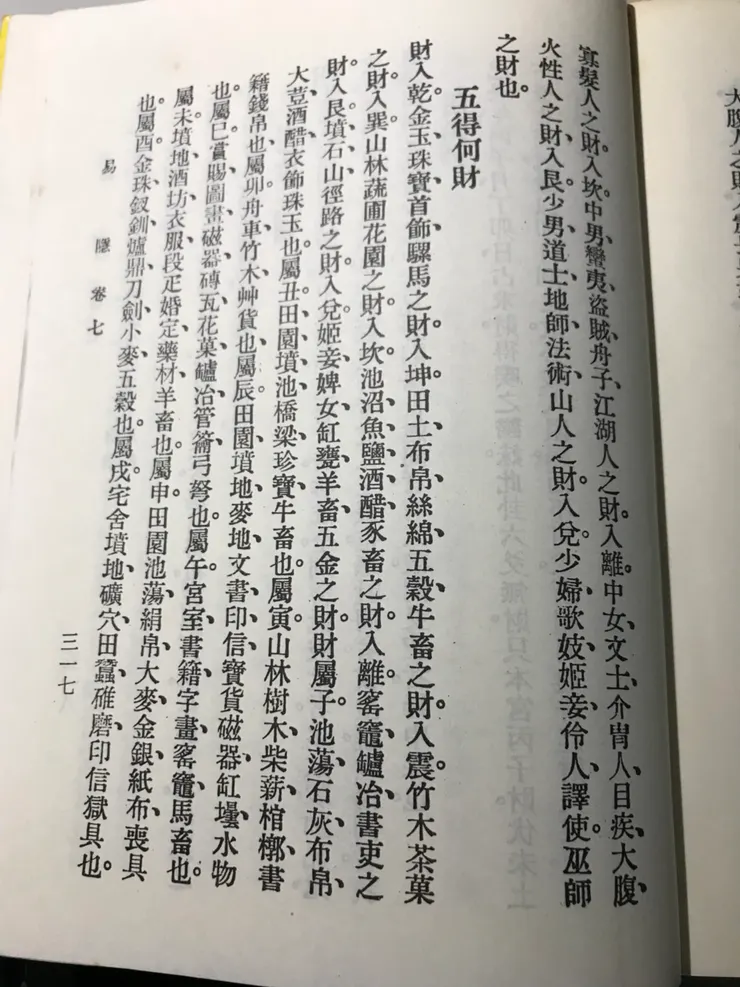 寡髮人之財入坎中男、蠻夷、盜賊、舟子、江湖人之財。入離。中女、文士、介冑人、目疾、大腹、
火性人之財、入艮。少男、道士、地師、法術、山人之財。入兌。少婦、歌妓、姬妾、伶人、譯使。巫師
之財也。
五得何財
財入乾。金玉、珠寶、首飾、騾馬之財。入坤。田土、布帛、絲綿、五穀、牛畜之財。入震。竹木、茶菓
之財。入巽。山林、蔬圃、花園之財、入坎。池沼、魚鹽、酒醋、豕畜之財、入離。窰竈、罏冶、書吏之
財。入艮。墳石、山徑路之財、入兌。姬妾、婢女、缸甕、羊畜、五金之財財屬子。池蕩、石灰、布帛、
大荳、酒醋、衣飾、珠玉也。屬丑。田園、墳池、橋梁、珍寶、牛畜也。屬寅。山林、樹木、柴薪、棺槨、書
籍、錢帛也。屬卯。舟車、竹木、艸貨也。屬辰。田園、墳地、麥地、文書、印信、寶貨、磁器、缸壜、水物
也。屬巳。賞賜、圖畫、磁器、磚瓦、花菓、罏冶、管籥、弓弩也。屬午。宮室、書籍、字畫、窰竈、馬畜也。
屬未。墳地、酒坊、衣服、段疋、婚定、藥材、羊畜也。屬申。田園、池蕩、絹帛、大麥、金銀、紙布、喪具
也。屬酉。金珠、釵釧、爐鼎、刀劍、小麥、五穀也。屬戌。宅舍、墳地、礦穴、田蠶、碓磨、印信、獄具也。
易隱卷七
三一七
大腹人之財入震